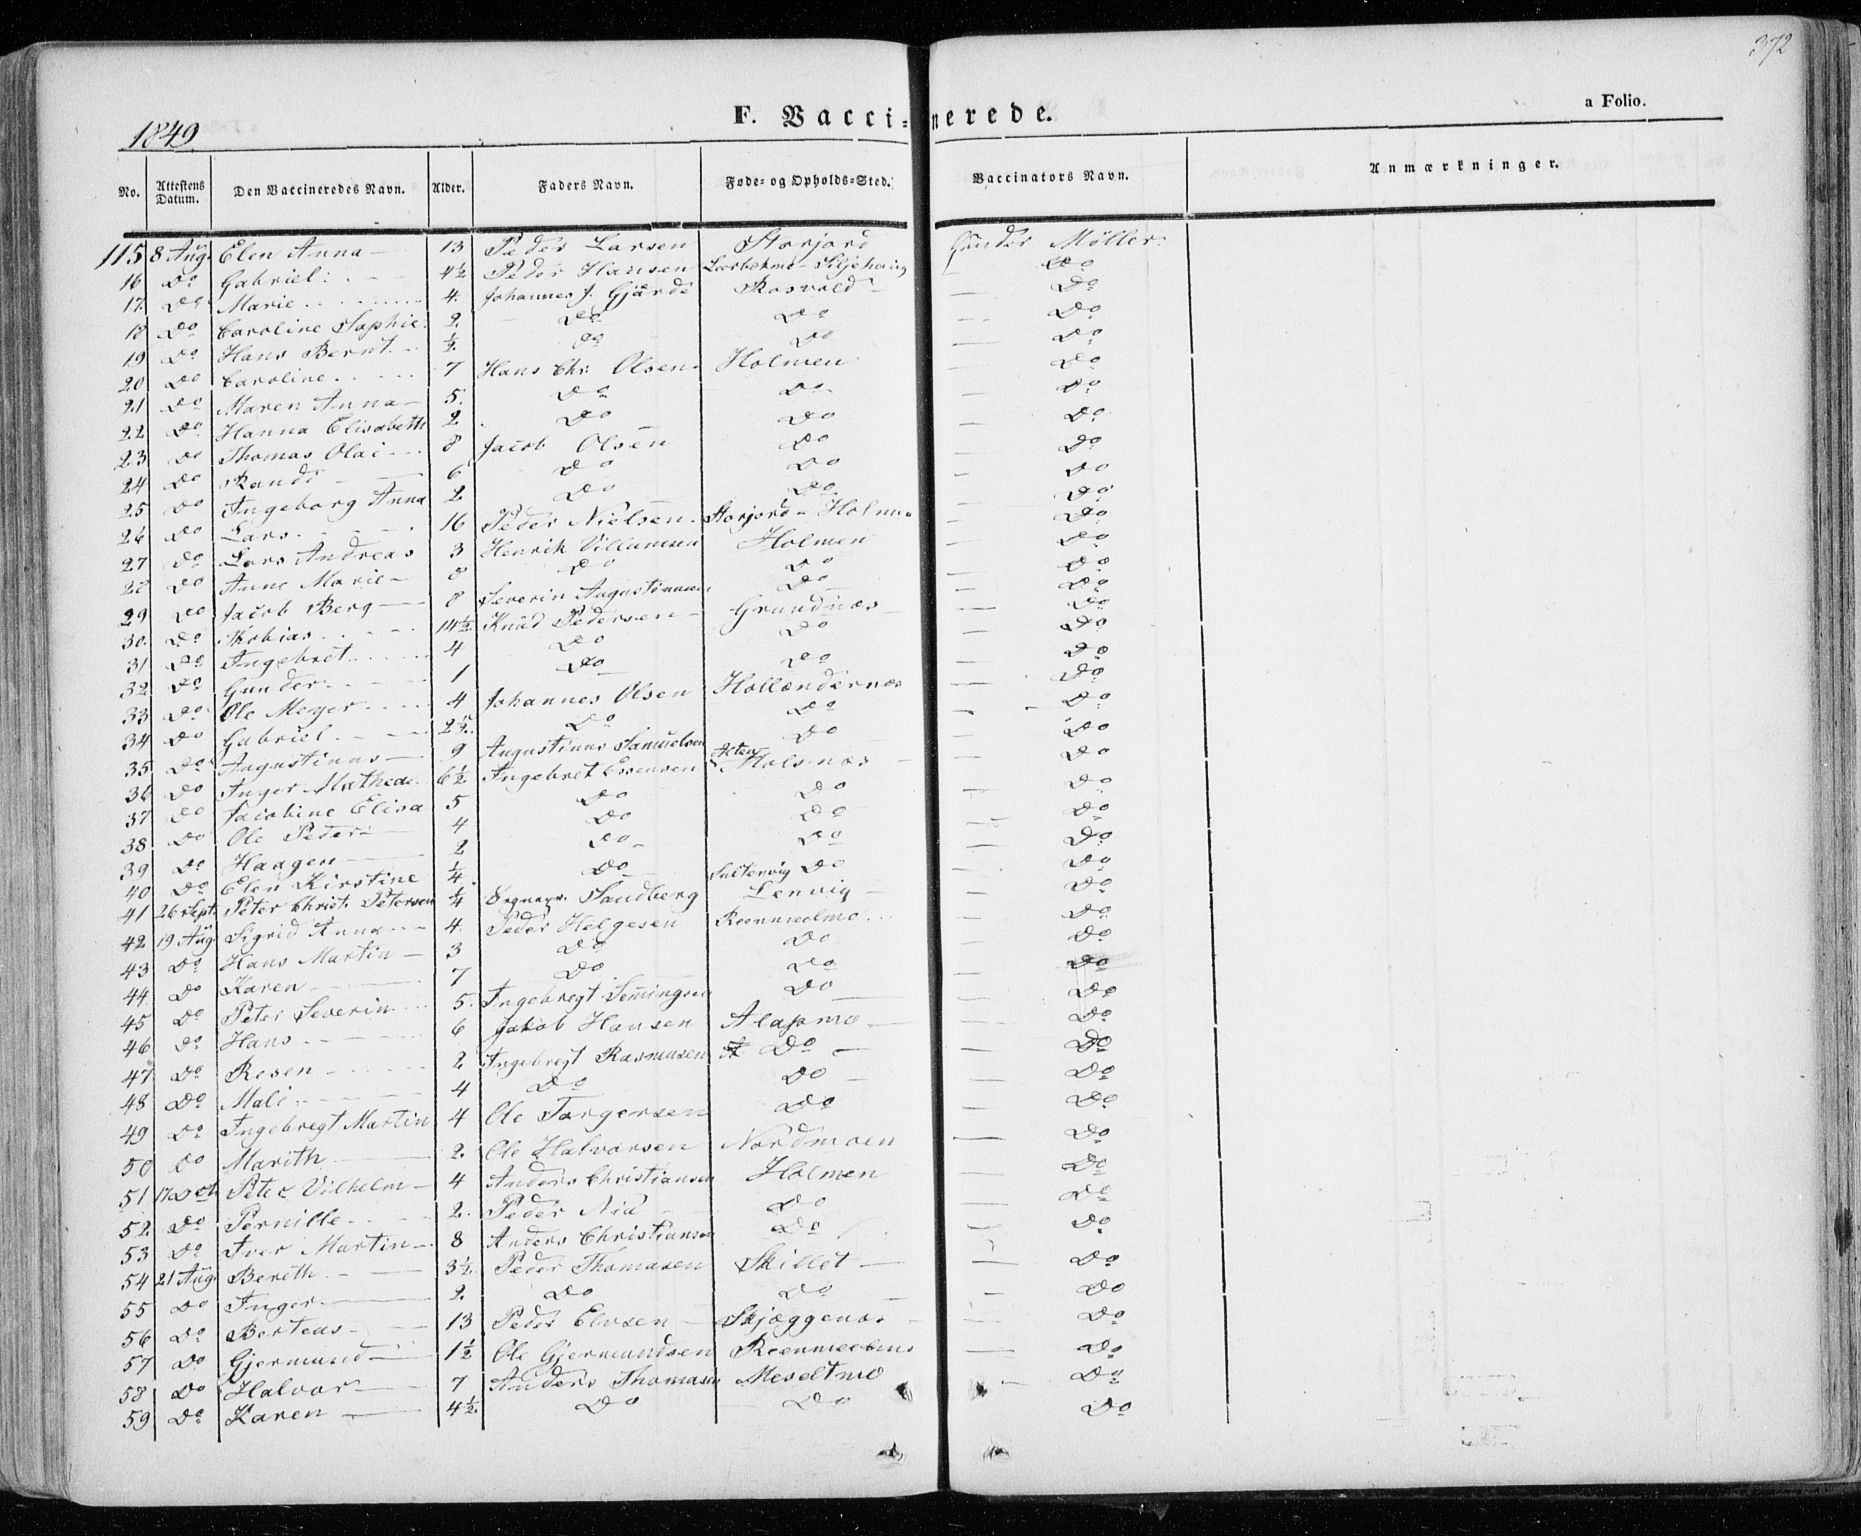 372
F. Vaccinerede.
a Folio.
1849
No. Attestens Datum. Den Vaccineredes Navn. Alder. Faders Navn. Føde- og Opholds-Sted. Vaccinators Navn. Anmærkninger.
115 8 Aug Elen Anna 13 Peder Larsen Storjord Gunder Møller
16 Do Gabriel 4½ Peder Hansen Do
17 Do Marie 4 Johannes J. Gjärde Rosvold Do
18 Do Caroline Sophie 2 Do Do Do
19 Do Hans Bernt ½ Do Do Do
20 Do Caroline 7 Hans Chr. Olsen Holmen Do
21 Do Maren Anna 5 Do Do Do
22 Do Hanna Elisabeth 2 Do Do Do
23 Do Thomas Olai 8 Jacob Olsen Do Do
24 Do Randi 6 Do Do Do
25 Do Ingeborg Anna 2 Do Do Do
26 Do Lars 16 Peder Nielsen Storjord - Holmen Do
27 Do Lars Andreas 3 Henrik Villumsen Holmen Do
28 Do Anne Marie 8 Do Do Do
29 Do Jacob Berg 8 Severin Augustinussen Do Do
30 Do Tobias 14½ Knud Pedersen Grundnæs Do
31 Do Ingebret 4 Do Do Do
32 Do Gunder 1 Do Do Do
33 Do Ole Meyer 4 Johannes Olsen Hollændernæs Do
34 Do Gabriel 2½ Do Do Do
35 Do Augustinus 9 Augustinus Samuelsen Do Do
36 Do Inger Mathea 6½ Ingebret Do
37 Do Jacobine Elisa 5 Do Do Do
38 Do Ole Peder 4 Do Do Do
39 Do Haagen 2 Do Do Do
40 Do Elen Kirstine ¼ Do Do Do
41 26 Sept. Peter Christ. Petersen ¼ Sandberg Lenvig Do
42 19 Aug Sigrid Anna 4 Peder Helgesen Do
43 Do Hans Martin 3 Do Do Do
44 Do Karen 7 Do Do Do
45 Do Peter Severin 5 Ingebregt Semingsen Do Do
46 Do Hans 6 Jakob Hansen Alapmo Do
47 Do Resen 2 Ingebregt Rasmusen Do Do
48 Do Mali 4 Do Do Do
49 Do Ingebregt Martin 4 Ole Torgersen Do Do
50 Do Marith 2 Ole Halvorsen Nordmoen Do
51 17 Oct Peter Vilhelm 4 Anders Christiansen Holmen Do
52 Do Pernille 2 Peder Do Do
53 Do Iver Martin 8 Anders Christiansen Do Do
54 21 Aug Bereth 3½ Peder Thomasen Skillet Do
55 Do Inger 2 Do Do Do
56 Do Berteus 13 Peder Elvsen Skjæggenæs Do
57 Do Gjermund 1½ Ole Gjermundsen Do
58 Do Halvor 7 Anders Thomasen Meseltmo Do
59 Do Karen 4½ Do Do Do